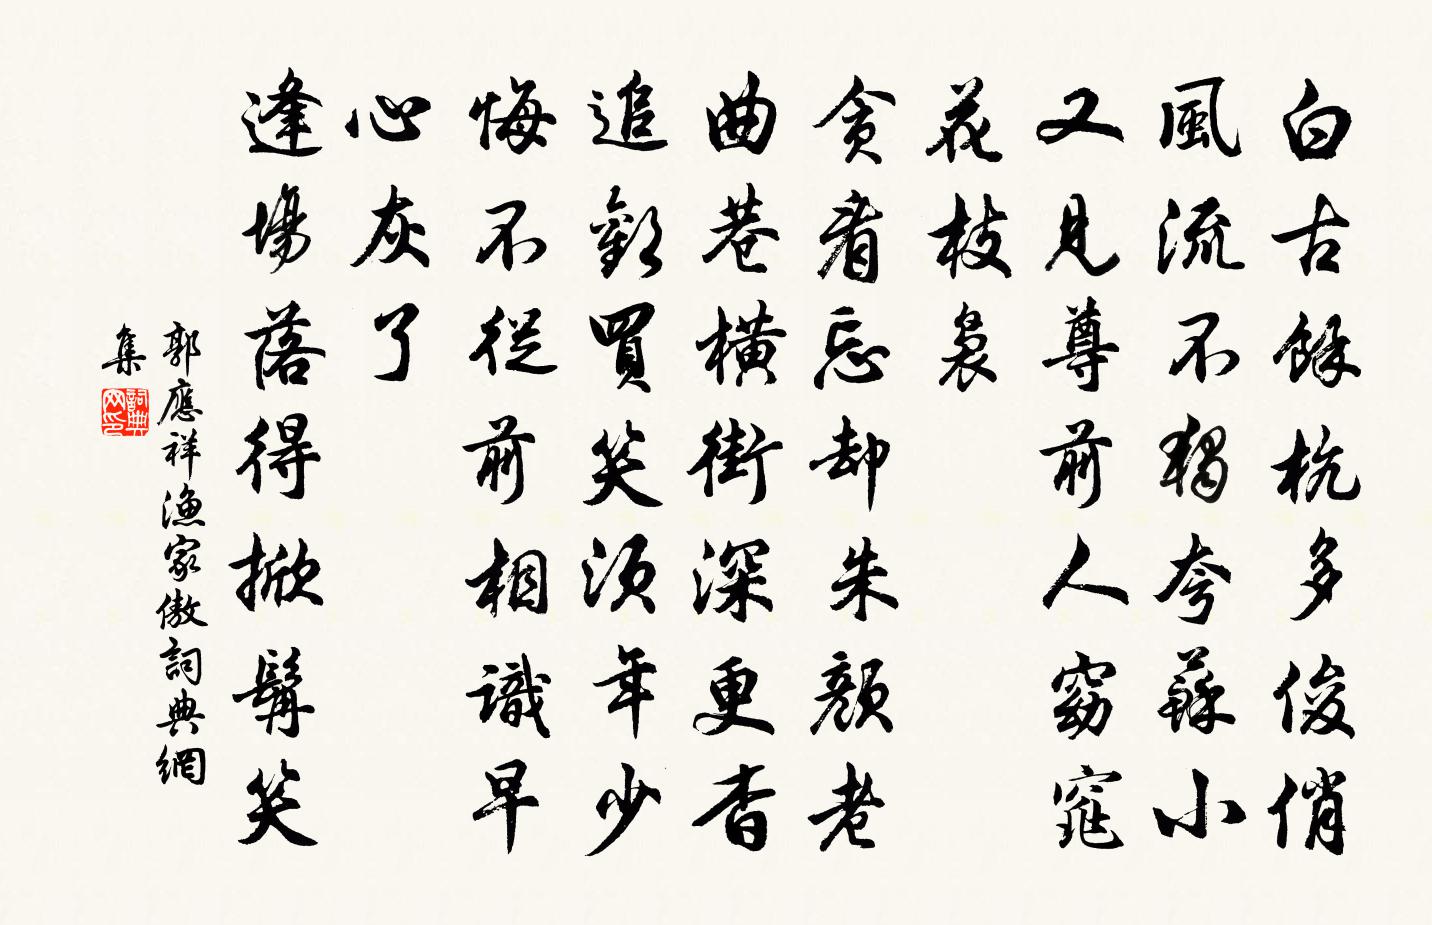 白古餘杭多俊俏
風流不獨夸蘇小
又見尊前人窈窕
花枝裊
貪看忘却朱顏老
曲巷橫街深更杳
追歡買笑須年少
悔不從前相識早
心灰了
逢場落得掀髯笑
郭應祥漁家傲詞典網
集
詞典
网印